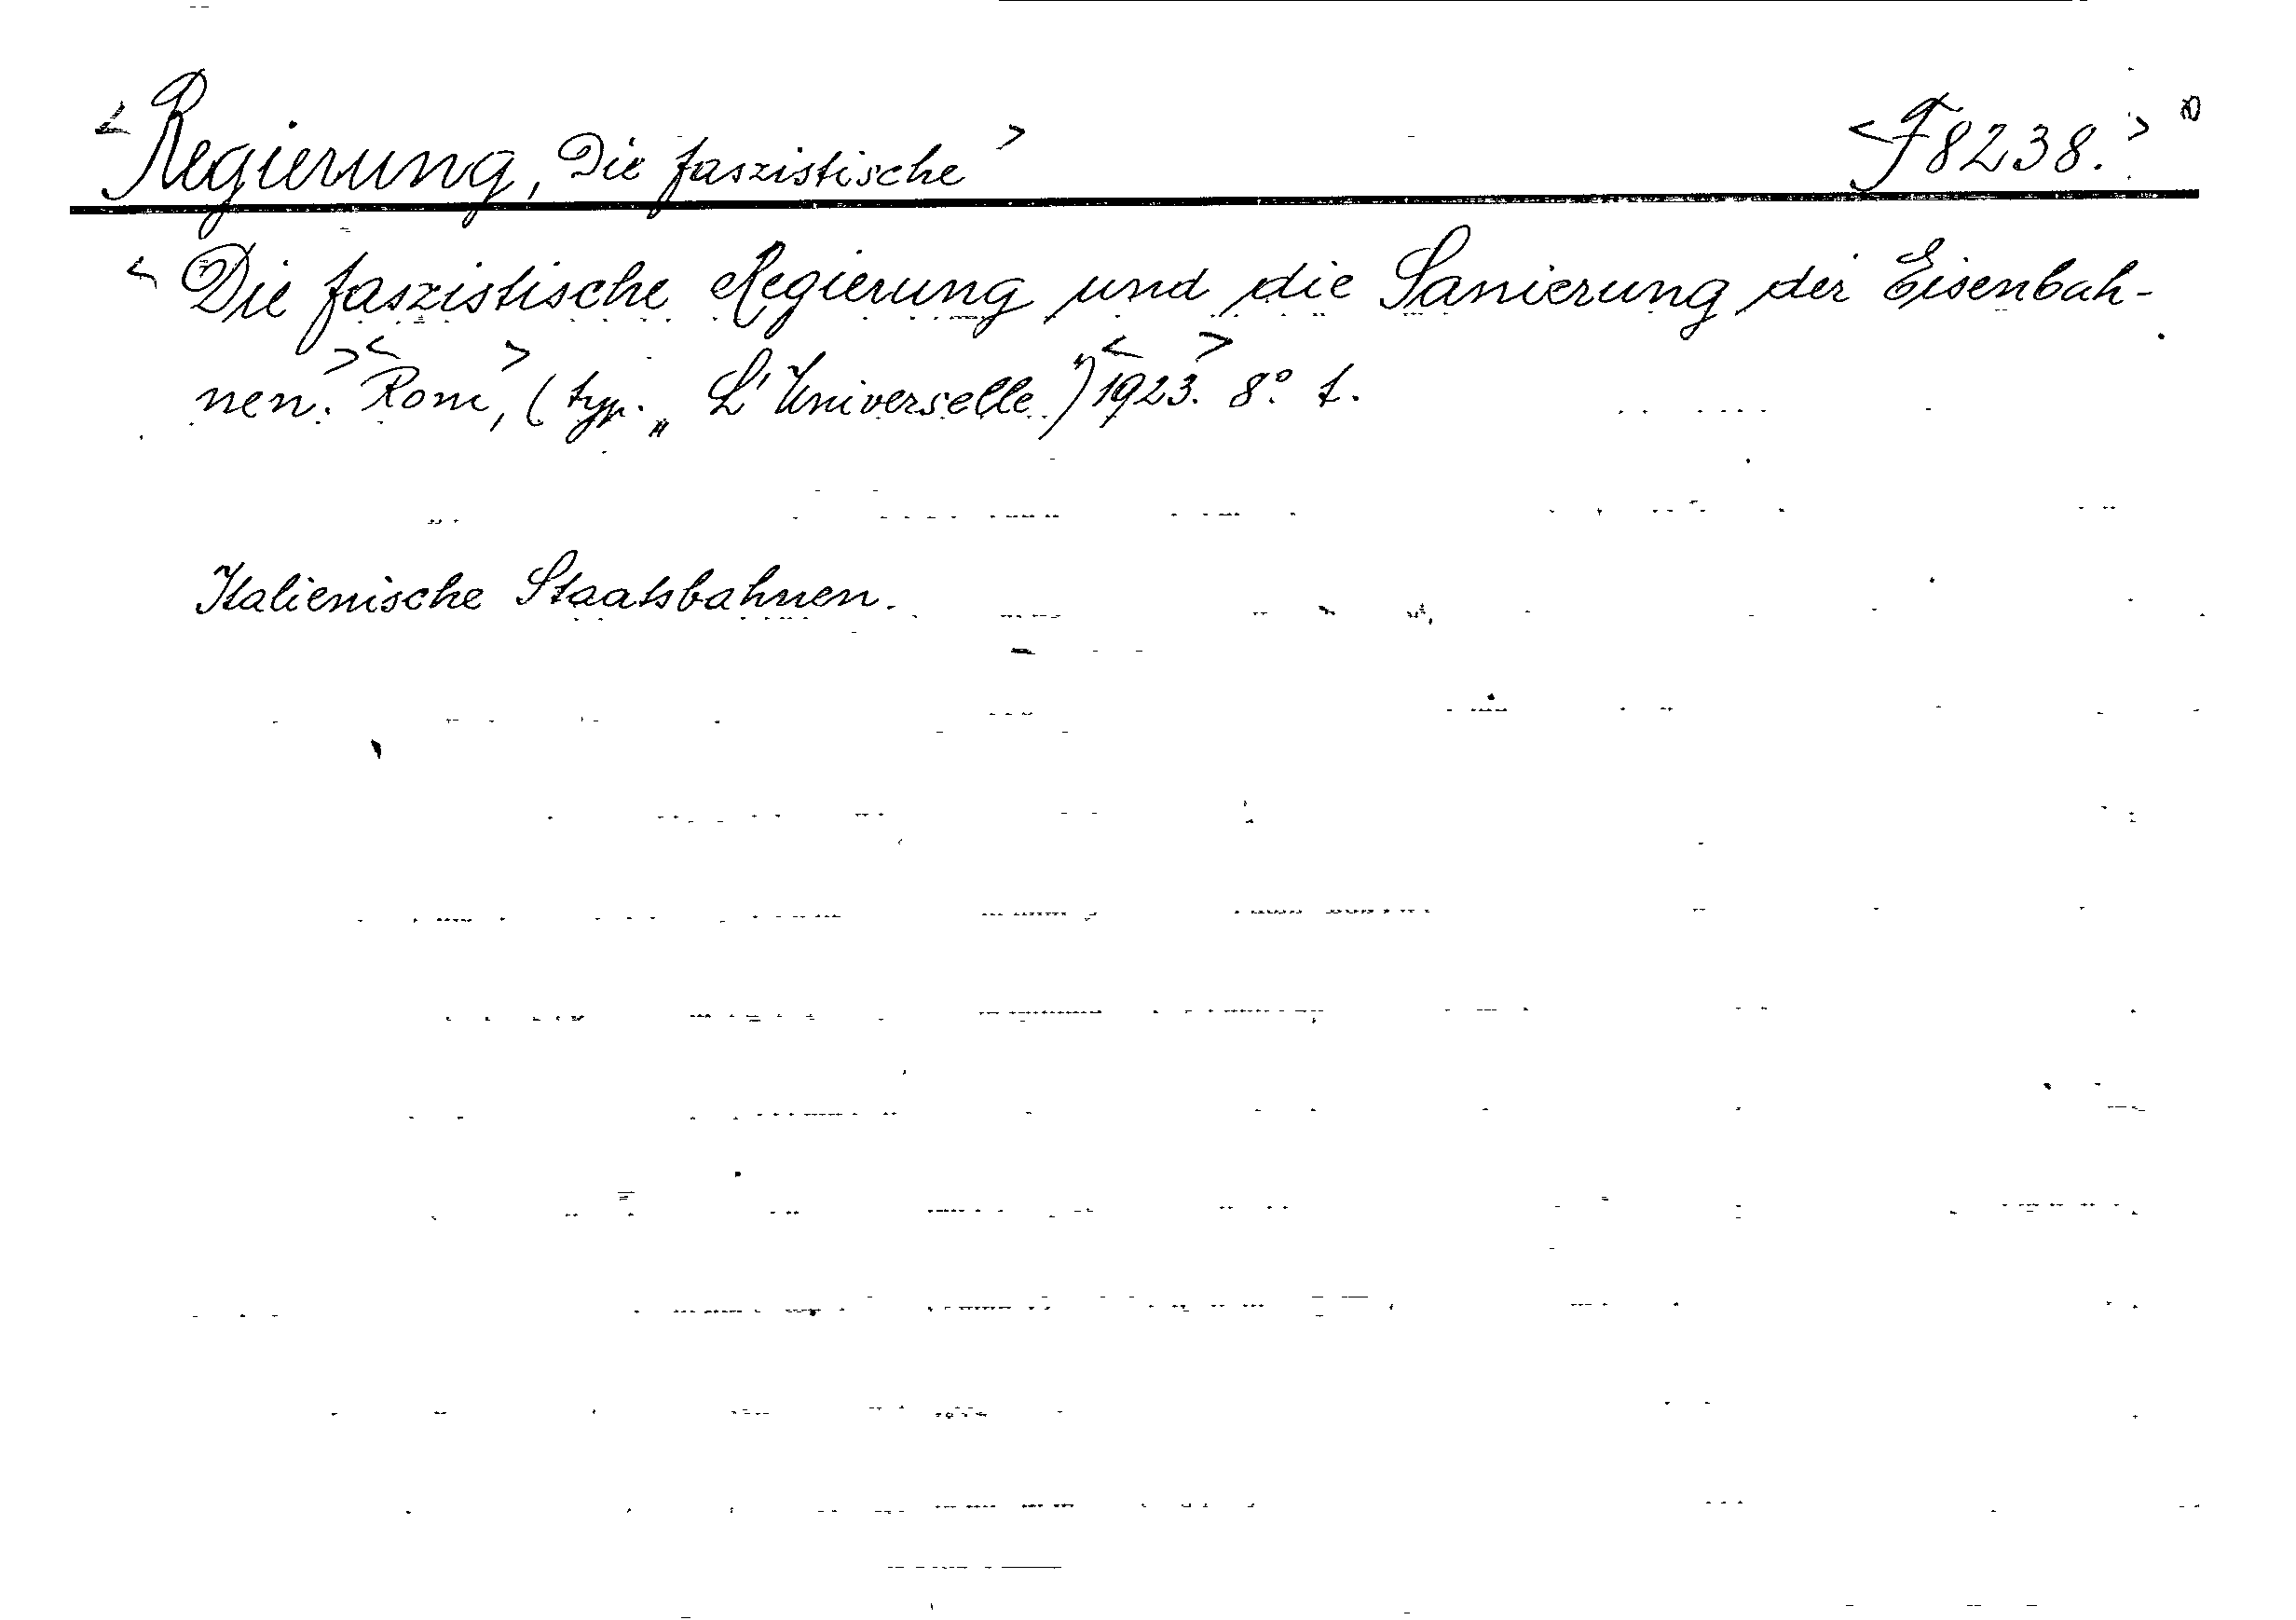 <Regierung, Die faszistische> <F8238.>
<Die faszistische Regierung und die Sanierung der Eisenbah-
nen.> <Rom>, (typ. „L'Universelle") <1923>. 8° t.
Italienische Staatsbahnen.